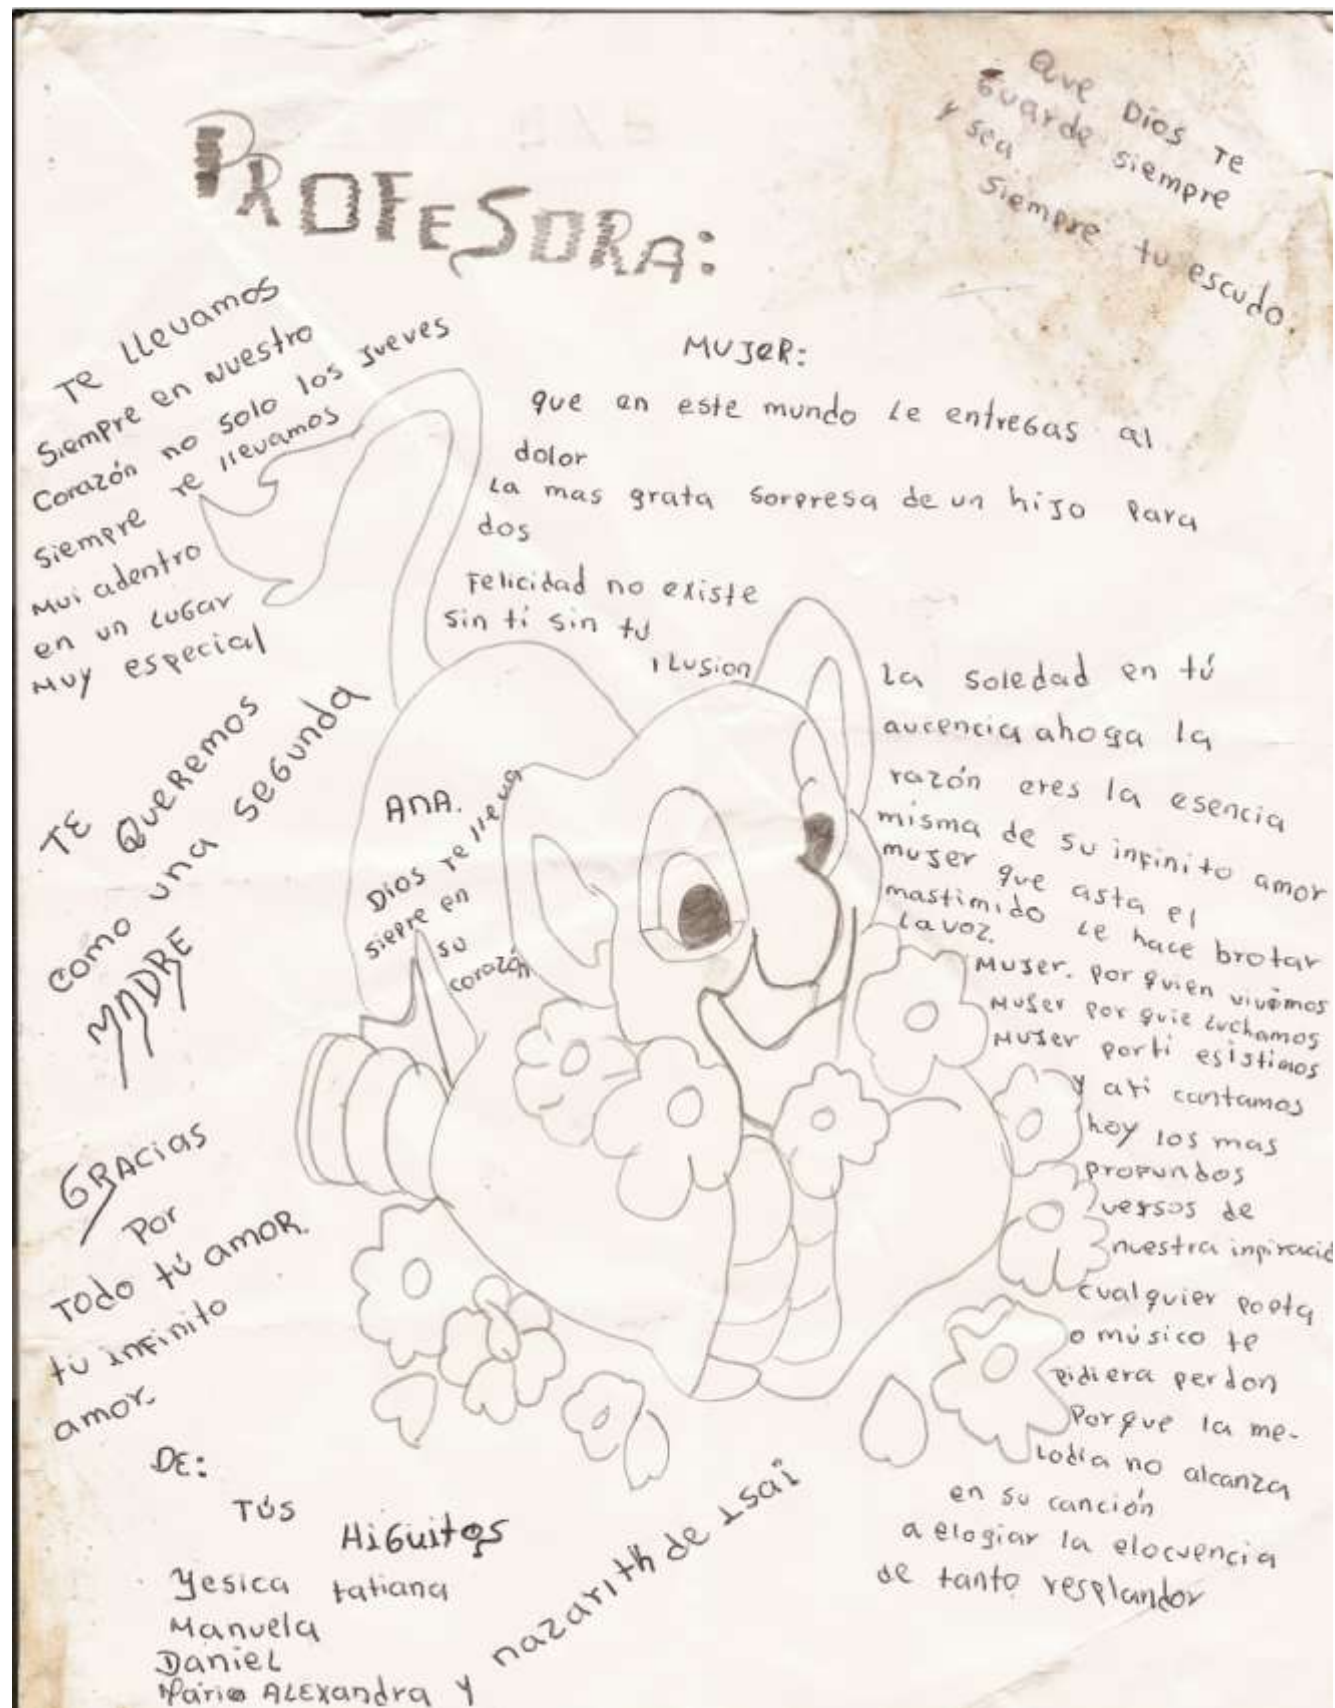 PROFESORA:
Que Dios Te
Guarde siempre
y sea
siempre tu escudo.
Te llevamos
Siempre en Nuestro
Corazón no solo los Jueves
Siempre te llevamos
Mui adentro
en un Lugar
Muy especial
TE QUEREMOS
como una segunda
MADRE
GRACIAS
Por
Todo tú amor.
tú infinito
amor.
MUJER:
que en este mundo Le entregas al
dolor
La mas grata sorpresa de un hijo para
dos
Felicidad no existe
sin tí sin tú
ilusion
La soledad en tú
aucencia ahoga la
razón eres la esencia
misma de su infinito amor
mujer que asta el
mastimido le hace brotar
La voz.
Mujer. por quien vivimos
Mujer por quie Luchamos
Mujer por ti esistimos
y ati cantamos
hoy los mas
profundos
versos de
nuestra
cualquier poeta
o músico te
pidiera perdon
Porque la me-
lodia no alcanza
en su canción
a elogiar la elocuencia
de tanto resplandor
ANA.
Dios te lleva
siepre en
su
corazón
DE:
Tús
HiGuitos
Yesica tatiana
Manuela
Daniel
Maria ALEXandra y
nazarith de Isai